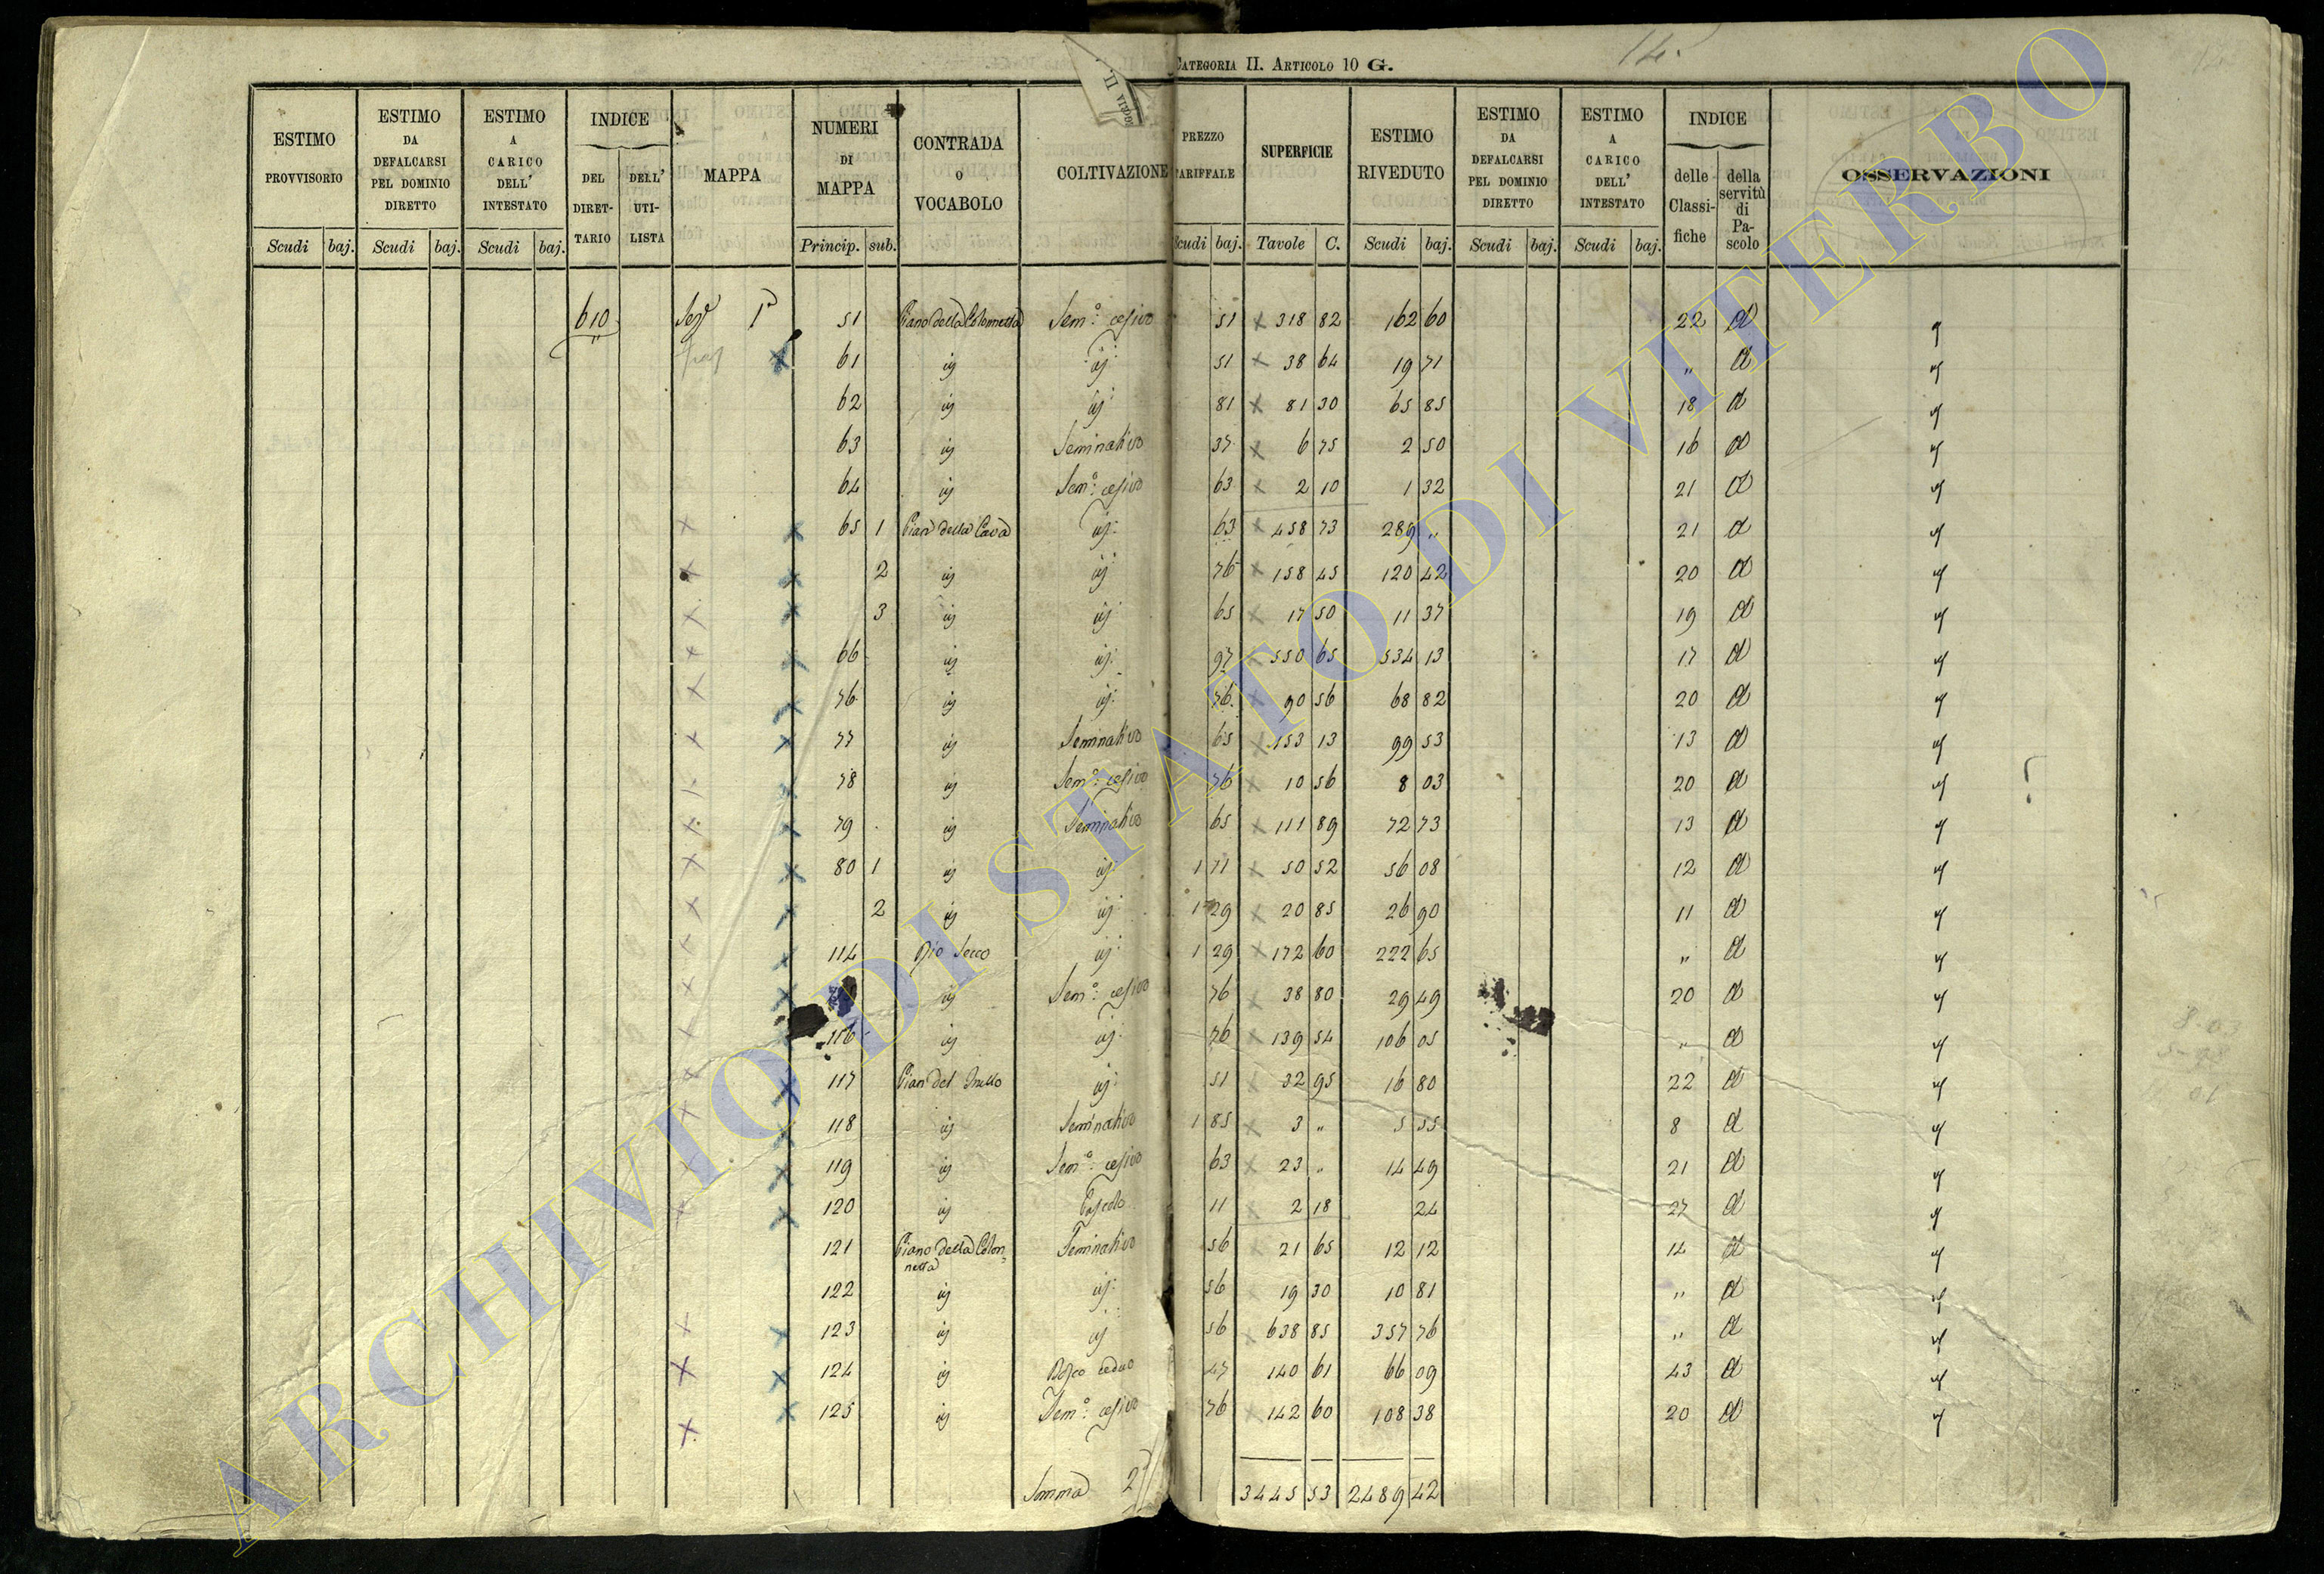 CATEGORIA II. ARTICOLO 10 G. 14.
ESTIMO PROVVISORIO ESTIMO DA DEFALCARSI PEL DOMINIO DIRETTO ESTIMO A CARICO DELL' INTESTATO INDICE DEL DIRET-TARIO DELL' UTI-LISTA MAPPA NUMERI DI MAPPA CONTRADA O VOCABOLO COLTIVAZIONE PREZZO TARIFFALE SUPERFICIE ESTIMO RIVEDUTO ESTIMO DA DEFALCARSI PEL DOMINIO DIRETTO ESTIMO A CARICO DELL' INTESTATO INDICE delle Classi-fiche della servitù di Pa-scolo OSSERVAZIONI
Scudi baj. Scudi baj. Scudi baj. Princip. sub. Scudi baj. Tavole C. Scudi baj. Scudi baj. Scudi baj.
610 Seze 1a 51 Piano della Colonnella Semo: cesivo 51 x 318 82 162 60 22 a
x 61 ij ij 51 x 38 64 19 71 " a
62 ij ij 81 x 81 30 65 85 18 a
63 ij Seminativo 37 x 6 75 2 50 16 a
64 ij Semo: cesivo 63 x 2 10 1 32 21 a
x x 65 1 Pian della Cava ij 63 x 458 73 289 " 21 a
x x 2 ij ij 76 x 158 45 120 42 20 a
x x 3 ij ij 65 x 17 50 11 37 19 a
x x 66 ij ij 97 x 550 65 534 13 17 a
x x 76 ij ij 76 x 90 56 68 82 20 a
x x 77 ij Seminativo 65 x 153 13 99 53 13 a
x x 78 ij Semo: cesivo 76 x 10 56 8 03 20 a
x x 79 ij Seminativo 65 x 111 89 72 73 13 a
x x 80 1 ij ij 1 11 x 50 52 56 08 12 a
x x 2 ij ij 1 29 x 20 85 26 90 11 a
x x 114 Rio Secco ij 1 29 x 172 60 222 65 " a
x x ij Semo: cesivo 76 x 38 80 29 49 20 a
x 116 ij ij 76 x 139 54 106 05 " a
x x 117 Pian del ij 51 x 32 95 16 80 22 a
x x 118 ij Seminativo 1 85 x 3 " 5 55 8 a
x x 119 ij Semo: cesivo 63 x 23 " 14 49 21 a
x x 120 ij Pascolo 11 x 2 18 24 27 a
121 Piano della Colon-
nella Seminativo 56 x 21 65 12 12 14 a
122 ij ij 56 x 19 30 10 81 " a
x x 123 ij ij 56 x 638 85 357 76 " a
x x 124 ij Bosco ceduo 47 140 61 66 09 43 a
x x 125 ij Semo: cesivo 76 x 142 60 108 38 20 a
Somma 3445 53 2489 42
ARCHIVIO DI STATO DI VITERBO